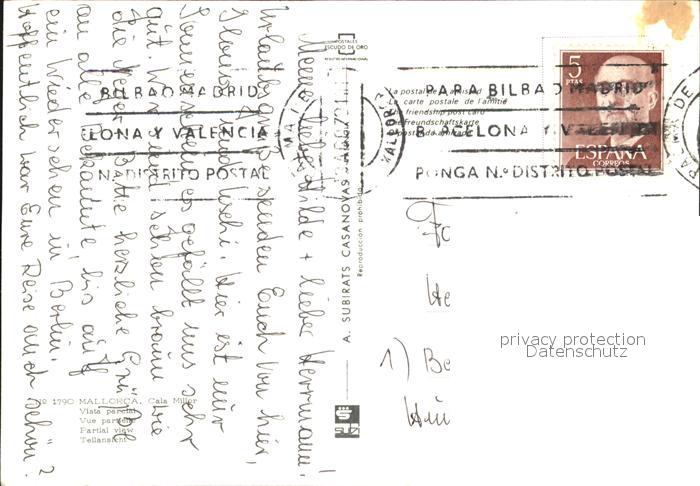 Meine liebe Hilde + lieber Herrmann!
Urlaubsgrüße senden Euch von hier,
und Uschi. Hier ist nur
Sonne es gefällt uns sehr
gut. Wir sind schon braun wie
die Neger. Bitte herzliche Grüße
an alle Bekannte bis auf
ein Wiedersehen in Berlin.
Hoffentlich war Eure Reise auch schön?
Nº 1790 MALLORCA. Cala Millor
Vista parcial
Vue partielle
Partial view
Teilansicht
POSTALES
ESCUDO DE ORO
A. SUBIRATS CASANOVAS
Reproducción prohibida
La postal de la amistad
La carte postale de l'amitié
The friendship post card
Die Freundschaftskarte
BILBAO MADRID
ELONA Y VALENCIA
Nº DISTRITO POSTAL
PARA BILBAO MADRID
BARCELONA Y VALENCIA
PONGA N.º DISTRITO POSTAL
5
PTAS
ESPAÑA
CORREOS
He
1) Be
privacy protection
Datenschutz